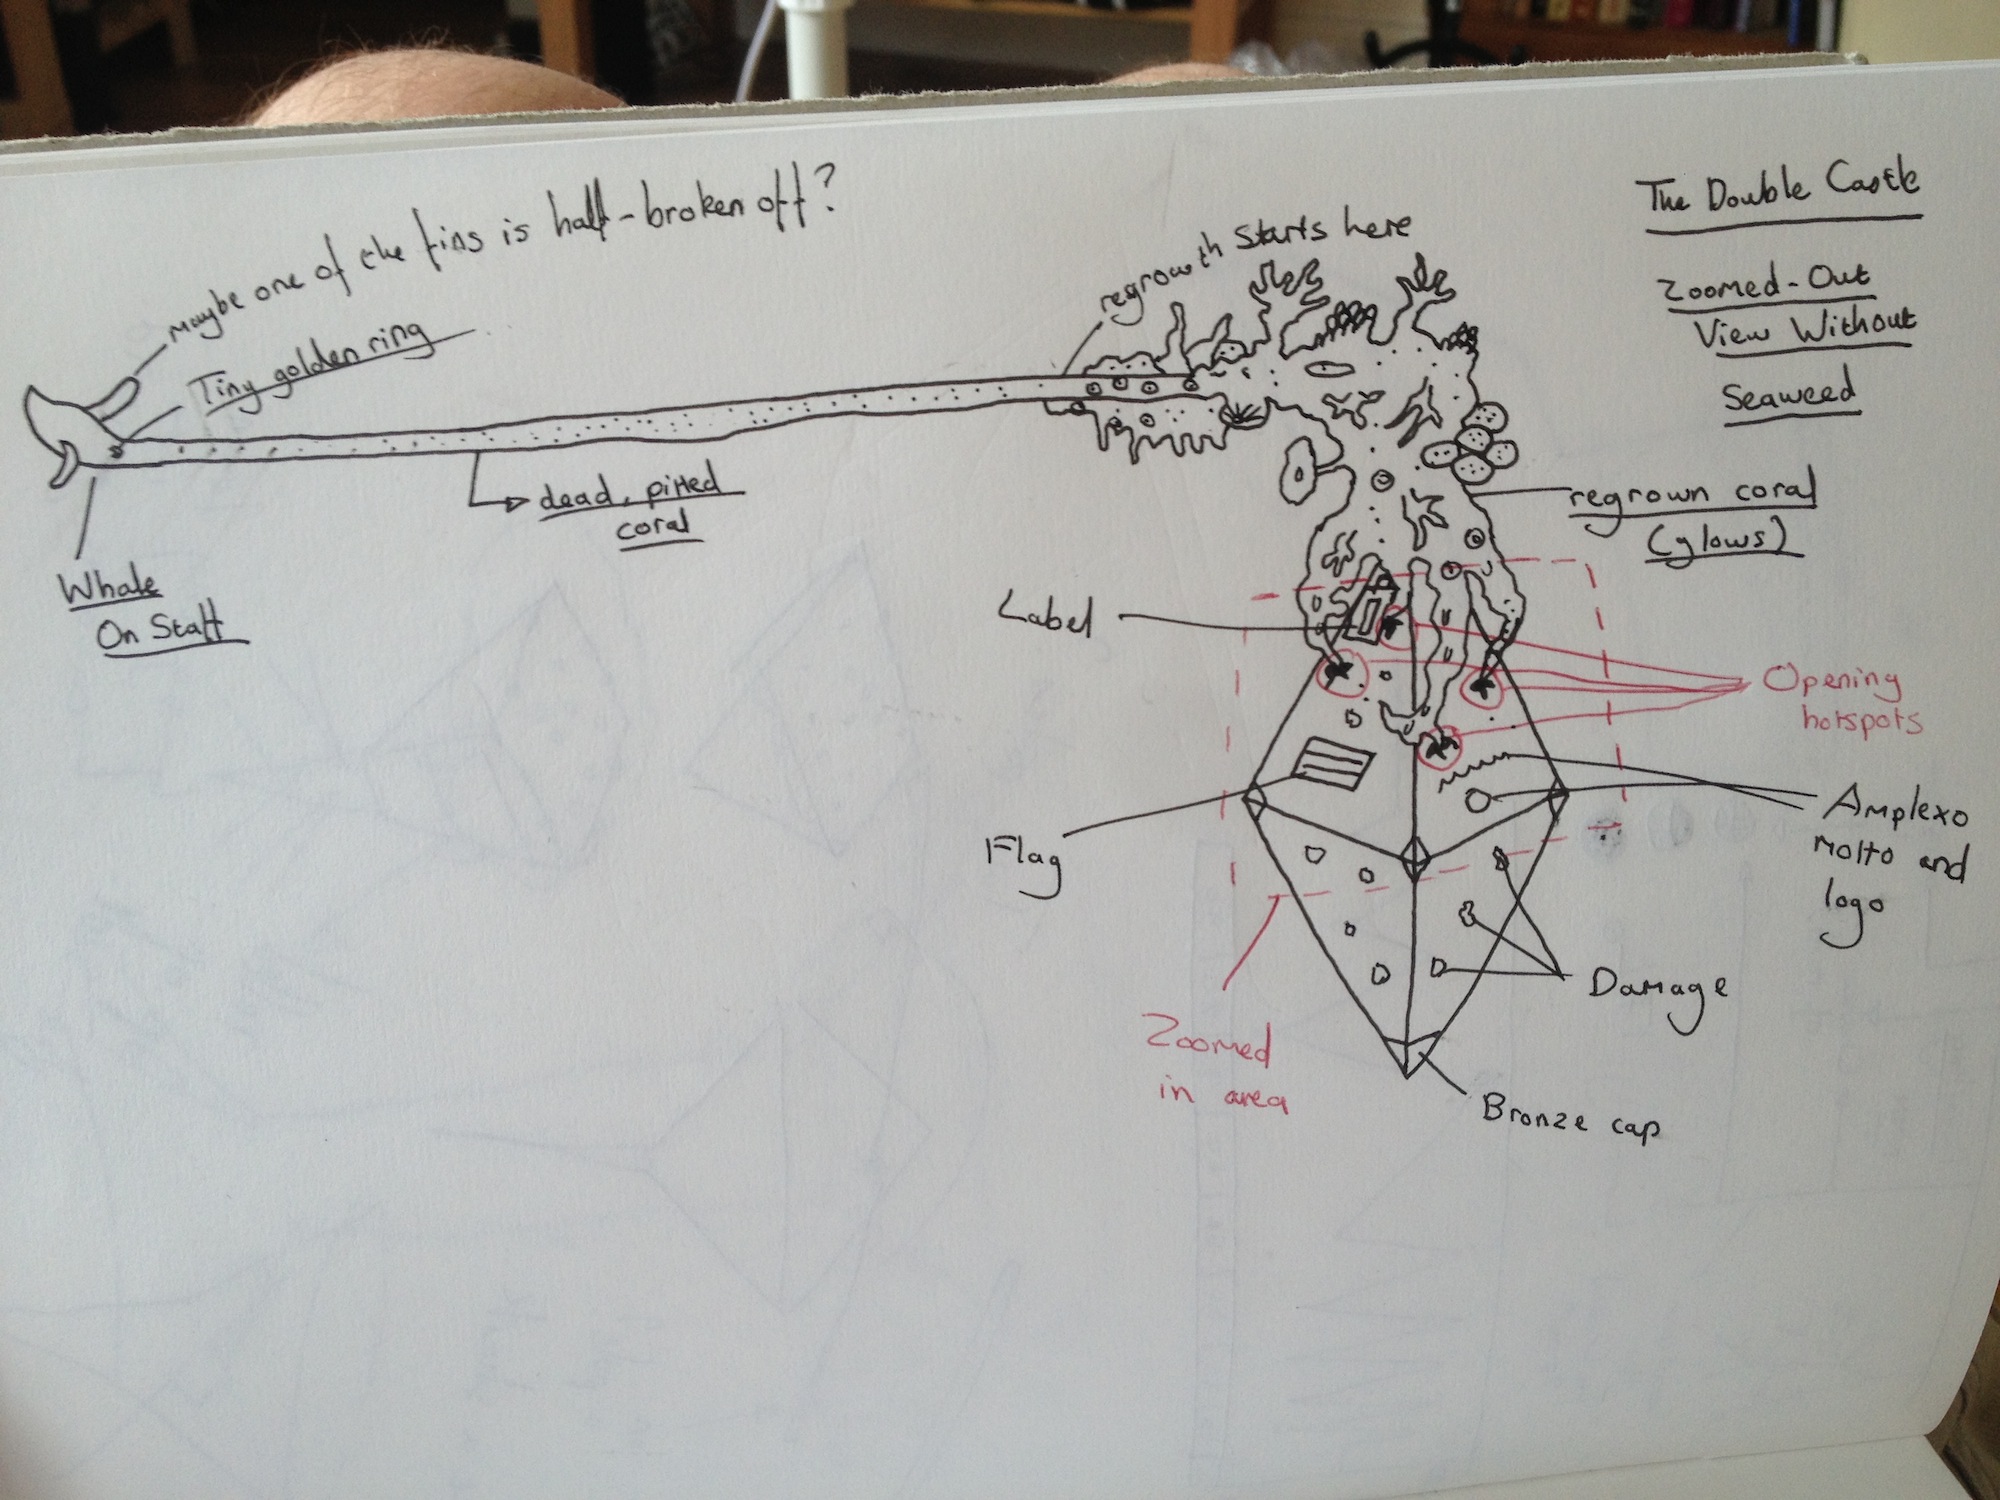 The Double Castle
Zoomed-Out
View Without
Seaweed
Maybe one of the fins is half-broken off?
Tiny golden ring
regrowth starts here
dead, pitted
coral
Whale
On Staff
regrown coral
(glows)
Label
Opening
hotspots
Flag
Amplexo
Motto and
logo
Damage
Zoomed
in area
Bronze cap